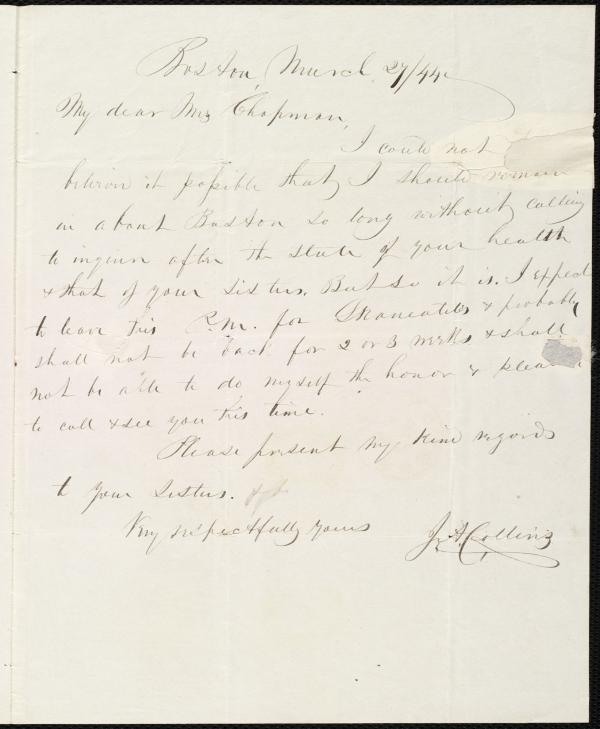 Boston, March 27/44.
My dear Mrs Chapman,
I could not
believe it possible that I should remain
in about Boston so long without calling
to inquire after the state of your health
& that of your sisters. But so it is. I expect
to leave this P.M. for Skaneateles & probably
shall not be back for 2 or 3 weeks & shall
not be able to do myself the honor & pleasure
to call & see you this time.
Please present my kind regards
to your sisters.
Very respectfully yours
J. A. Collins